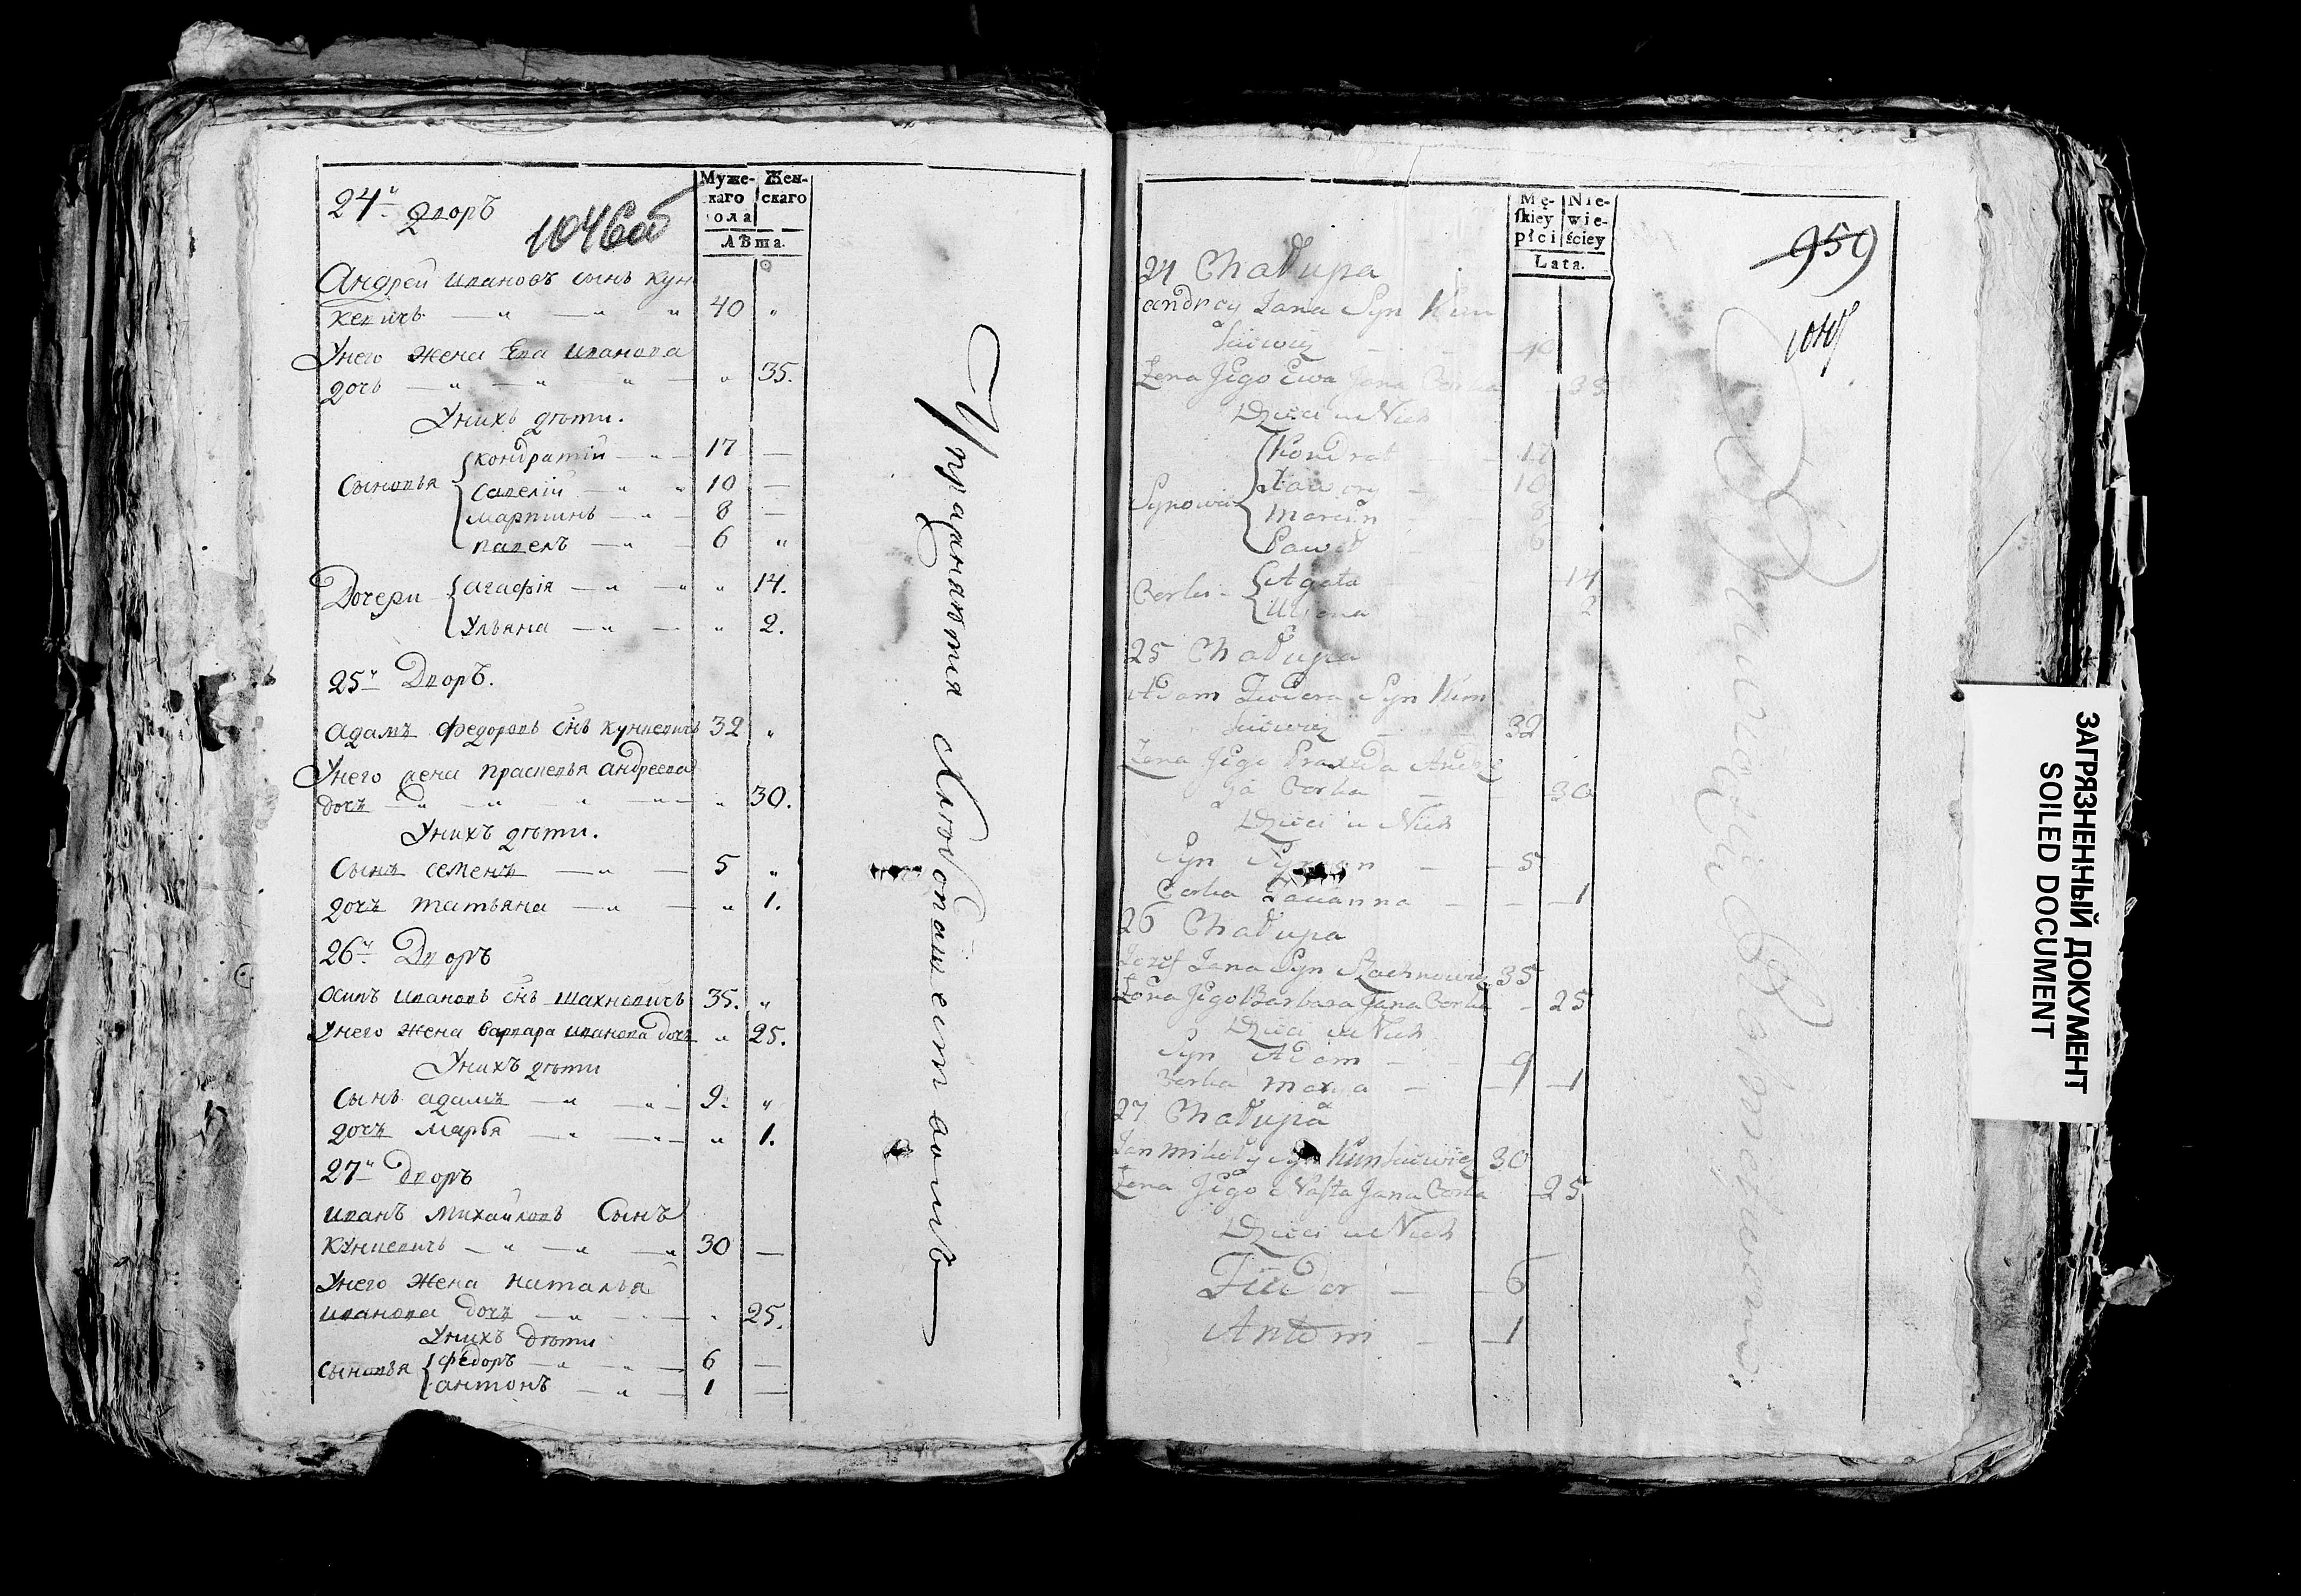 Муже-
каго
пола
Жен-
скаго
Лѣта.
24й Дворъ
1046об
Андрей Ивановъ сынъ Кун
кевичъ 40
У него жена Ева Иванова
дочь 35.
У нихъ дѣти.
Сыновья
Кондратій 17
Савелій 10
Мартинъ 8
Павелъ 6
Дочери
Агафія 14.
Ульяна 2.
25й Дворъ.
Адамъ Федоровъ снъ Кункевичъ 32
У него жена Прасковья Андреева
дочъ 30.
У нихъ дѣти.
Сынъ Семенъ 5
дочъ Татьяна 1.
26й Дворъ
Осипъ Ивановъ снъ Шахновичъ 35.
У него жена Варвара Иванова дочъ 25.
У нихъ дѣти
Сынъ Адамъ 9.
дочъ Марья 1.
27й Дворъ
Иванъ Михайловъ Сынъ
Кункевичъ 30
У него жена Наталья
Иванова дочъ 25.
У нихъ дѣти
Сыновья
Федоръ 6
Антонъ 1
Mę-
skiey
płci
Nie-
wie-
ściey
Lata.
959
24 Chałupa
Andrey Jana Syn Kun
kiewicz 40
Żona Jego Ewa Jana Corka 35
Dzieci u Nich
Synowie
Kondrat 17
10
Marcin 8
Paweł 6
Corki
Agata 14
Uljana 2
25 Chałupa
Adam Fiodora Syn Kun
kiewicz 32
Żona Jego Praxeda Andrze
ja Corka 30
Dzieci u Nich
Syn Symon 5
Corka Tacianna 1
26 Chałupa
Jozef Jana Syn Szachnowicz 35
Żona Jego Barbara Jana Corka 25
Dzieci u Nich
Syn Adam 9
Corka Marya 1
27 Chałupa
Jan Mikołay Syn Kunkiewicz 30
Żona Jego Nasta Jana Corka 25
Dzieci u Nich
Fiedor 6
Antoni 1
ЗАГРЯЗНЕННЫЙ ДОКУМЕНТ
SOILED DOCUMENT